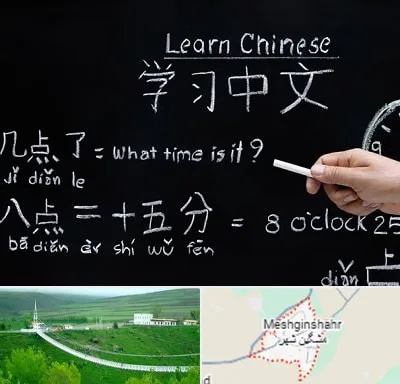 Learn Chinese
学习中文
几点了 = What time is it?
jǐ diǎn le
八点二十五分 = 8 o'clock 25
bā diǎn èr shí wǔ fēn
9
上
diǎn
Meshginshahr
مشگین شهر
d